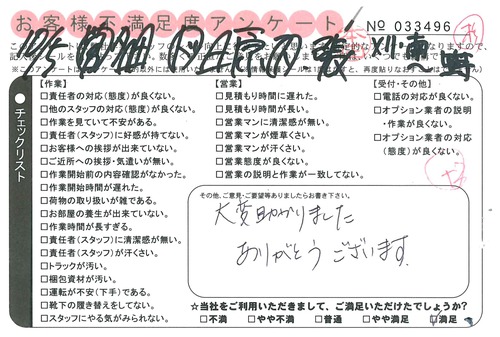 お客様不満足度アンケート
No 033496
チェックリスト
【作業】
□責任者の対応(態度)が良くない。
□他のスタッフの対応(態度)が良くない。
□作業を見ていて不安がある。
□責任者(スタッフ)に好感が持てない。
□お客様への挨拶が出来ていない。
□ご近所への挨拶・気遣いが無い。
□作業開始前の内容確認がなかった。
□作業開始時間が遅れた。
□荷物の取り扱いが雑である。
□お部屋の養生が出来ていない。
□作業時間が長すぎる。
□責任者(スタッフ)に清潔感が無い。
□責任者(スタッフ)が汗くさい。
□トラックが汚い。
□梱包資材が汚い。
□運転が不安(下手)である。
□靴下の履き替えをしてない。
□スタッフにやる気がみられない。
【営業】
□見積もり時間に遅れた。
□見積もり時間が長い。
□営業マンに清潔感が無い。
□営業マンが煙草くさい。
□営業マンが汗くさい。
□営業態度が良くない。
□営業の説明と作業が一致してない。
【受付・その他】
□電話の対応が良くない。
□オプション業者の説明
・作業が良くない。
□オプション業者の対応
(態度)が良くない。
その他、ご意見・ご要望等ありましたらお書き下さい。
大変助かりました
ありがとうございます。
☆当社をご利用いただきまして、ご満足いただけたでしょうか?
□不満 □やや不満 □普通 □やや満足 □満足